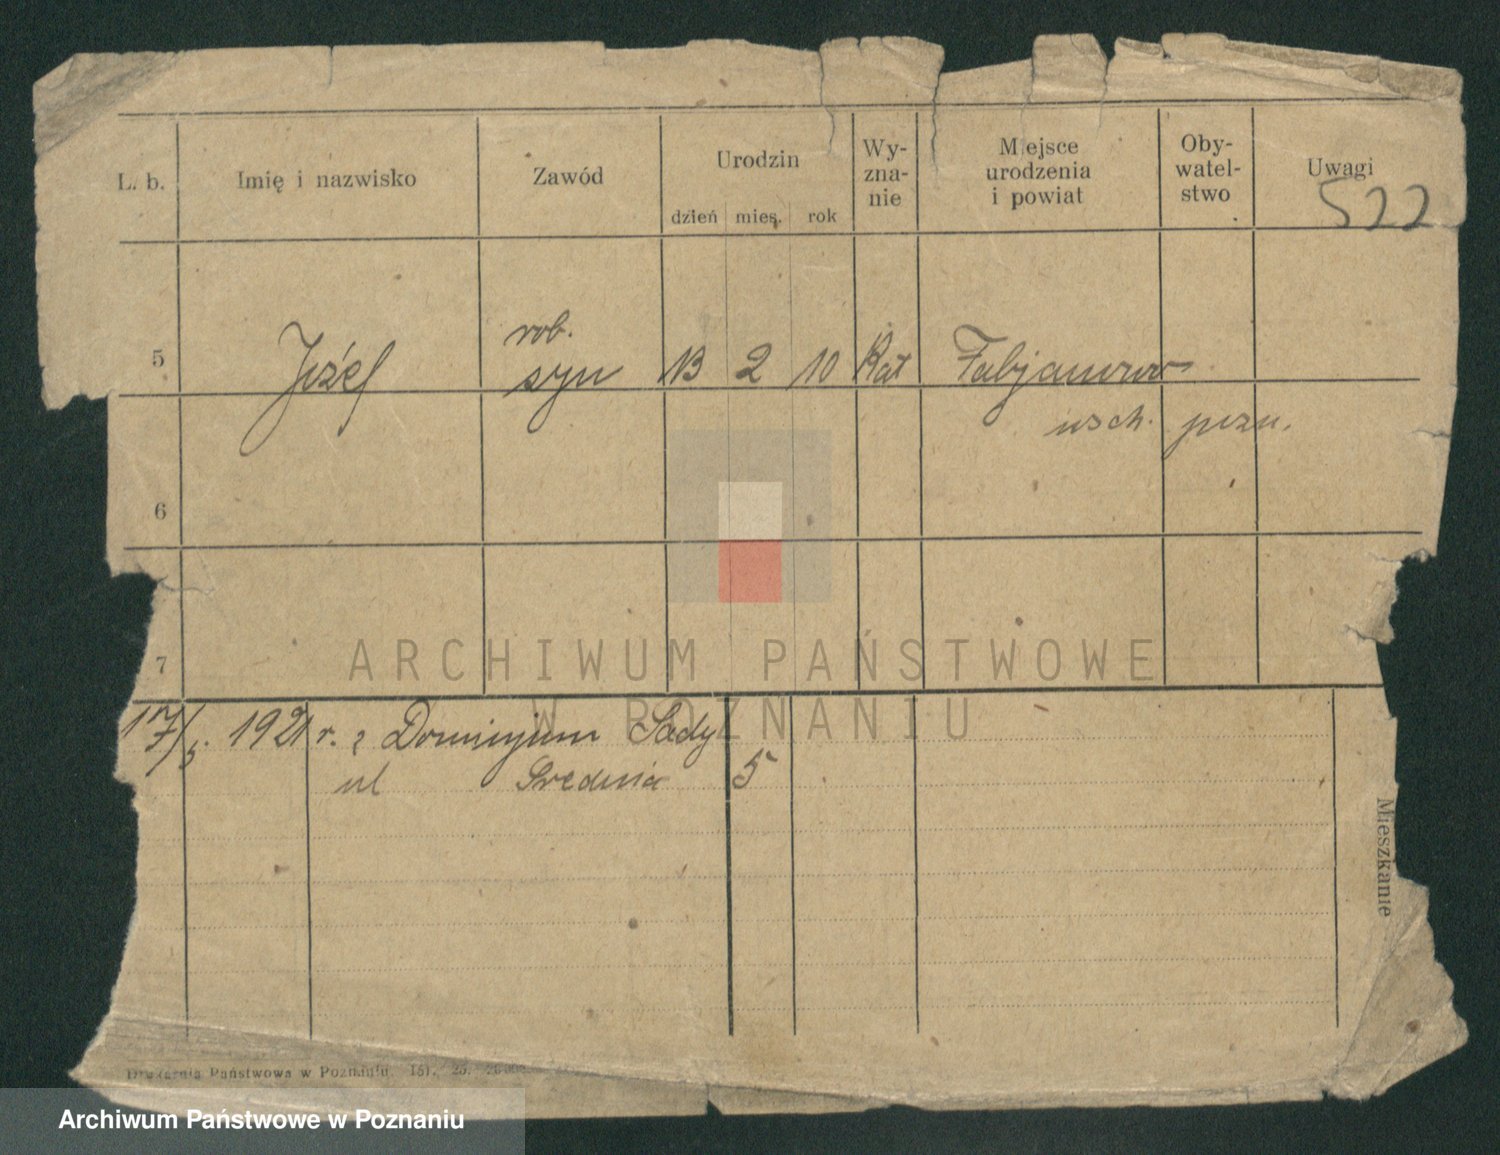 L. b. Imię i nazwisko Zawód Urodzin dzień mies. rok Wy-zna-nie Miejsce urodzenia i powiat Oby-watel-stwo Uwagi
522
rob.
5 Józef syn 13 2 10 Kat Fabjanowo
wsch. pozn.
6
7
17/5. 1921 r. z Dominjum Sady
ul Średnia 5
Mieszkanie
Drukarnia Państwowa w Poznaniu.
ARCHIWUM PAŃSTWOWE
W POZNANIU
Archiwum Państwowe w Poznaniu